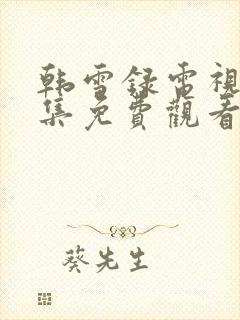 韩雪録雷視
集免費觀看
葵先生